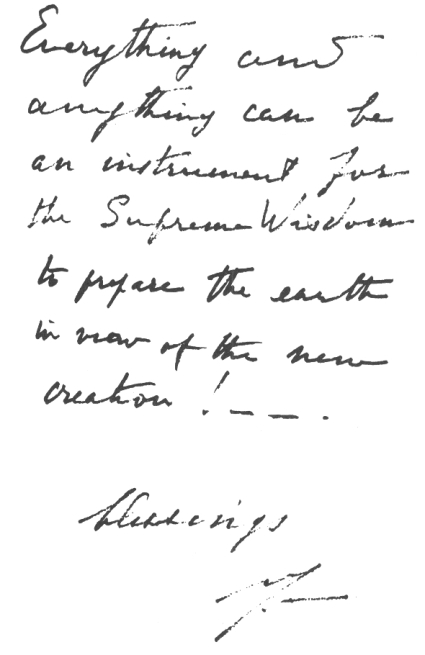 Everything and
anything can be
an instrument for
the Supreme Wisdom
to prepare the earth
in view of the new
creation ! _ _ .
blessings